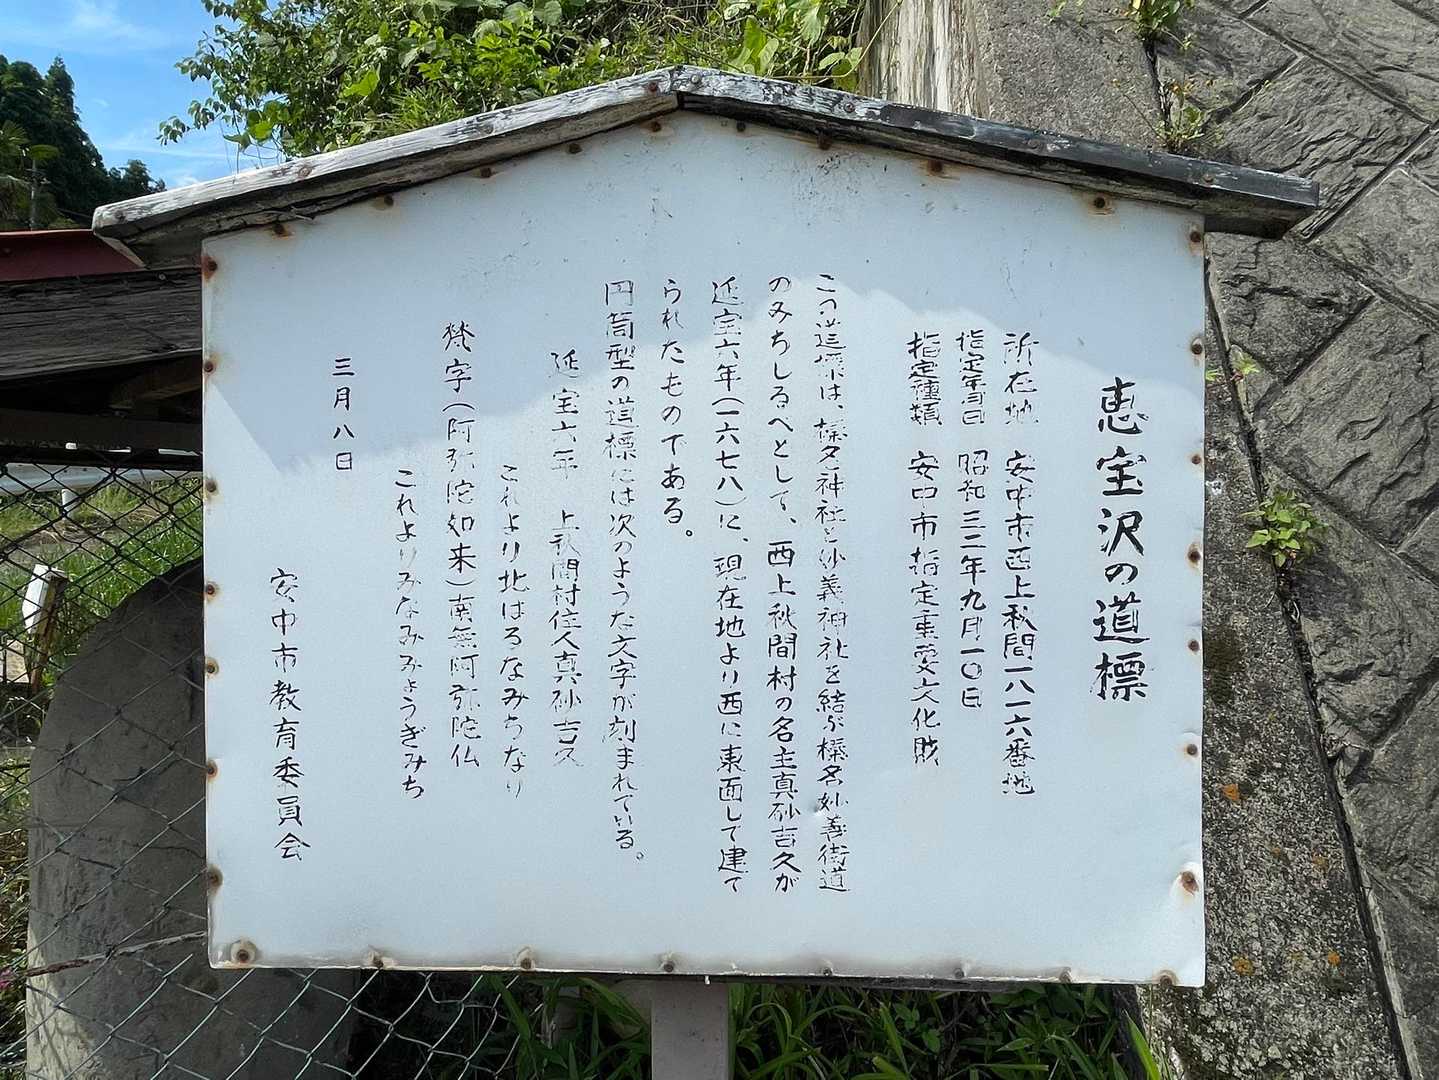 恵宝沢の道標
所在地 安中市西上秋間一八一六番地
指定年月日 昭和三二年九月一〇日
指定種類 安中市指定重要文化財
この道標は、榛名神社と妙義神社を結ぶ榛名妙義街道
のみちしるべとして、西上秋間村の名主真砂吉久が
延宝六年(一六七八)に、現在地より西に東面して建て
られたものである。
円筒型の道標には次のような文字が刻まれている。
延宝六年 上秋間村住人真砂吉久
これより北はるなみちなり
梵字(阿弥陀如来)南無阿弥陀仏
これよりみなみみょうぎみち
三月八日
安中市教育委員会